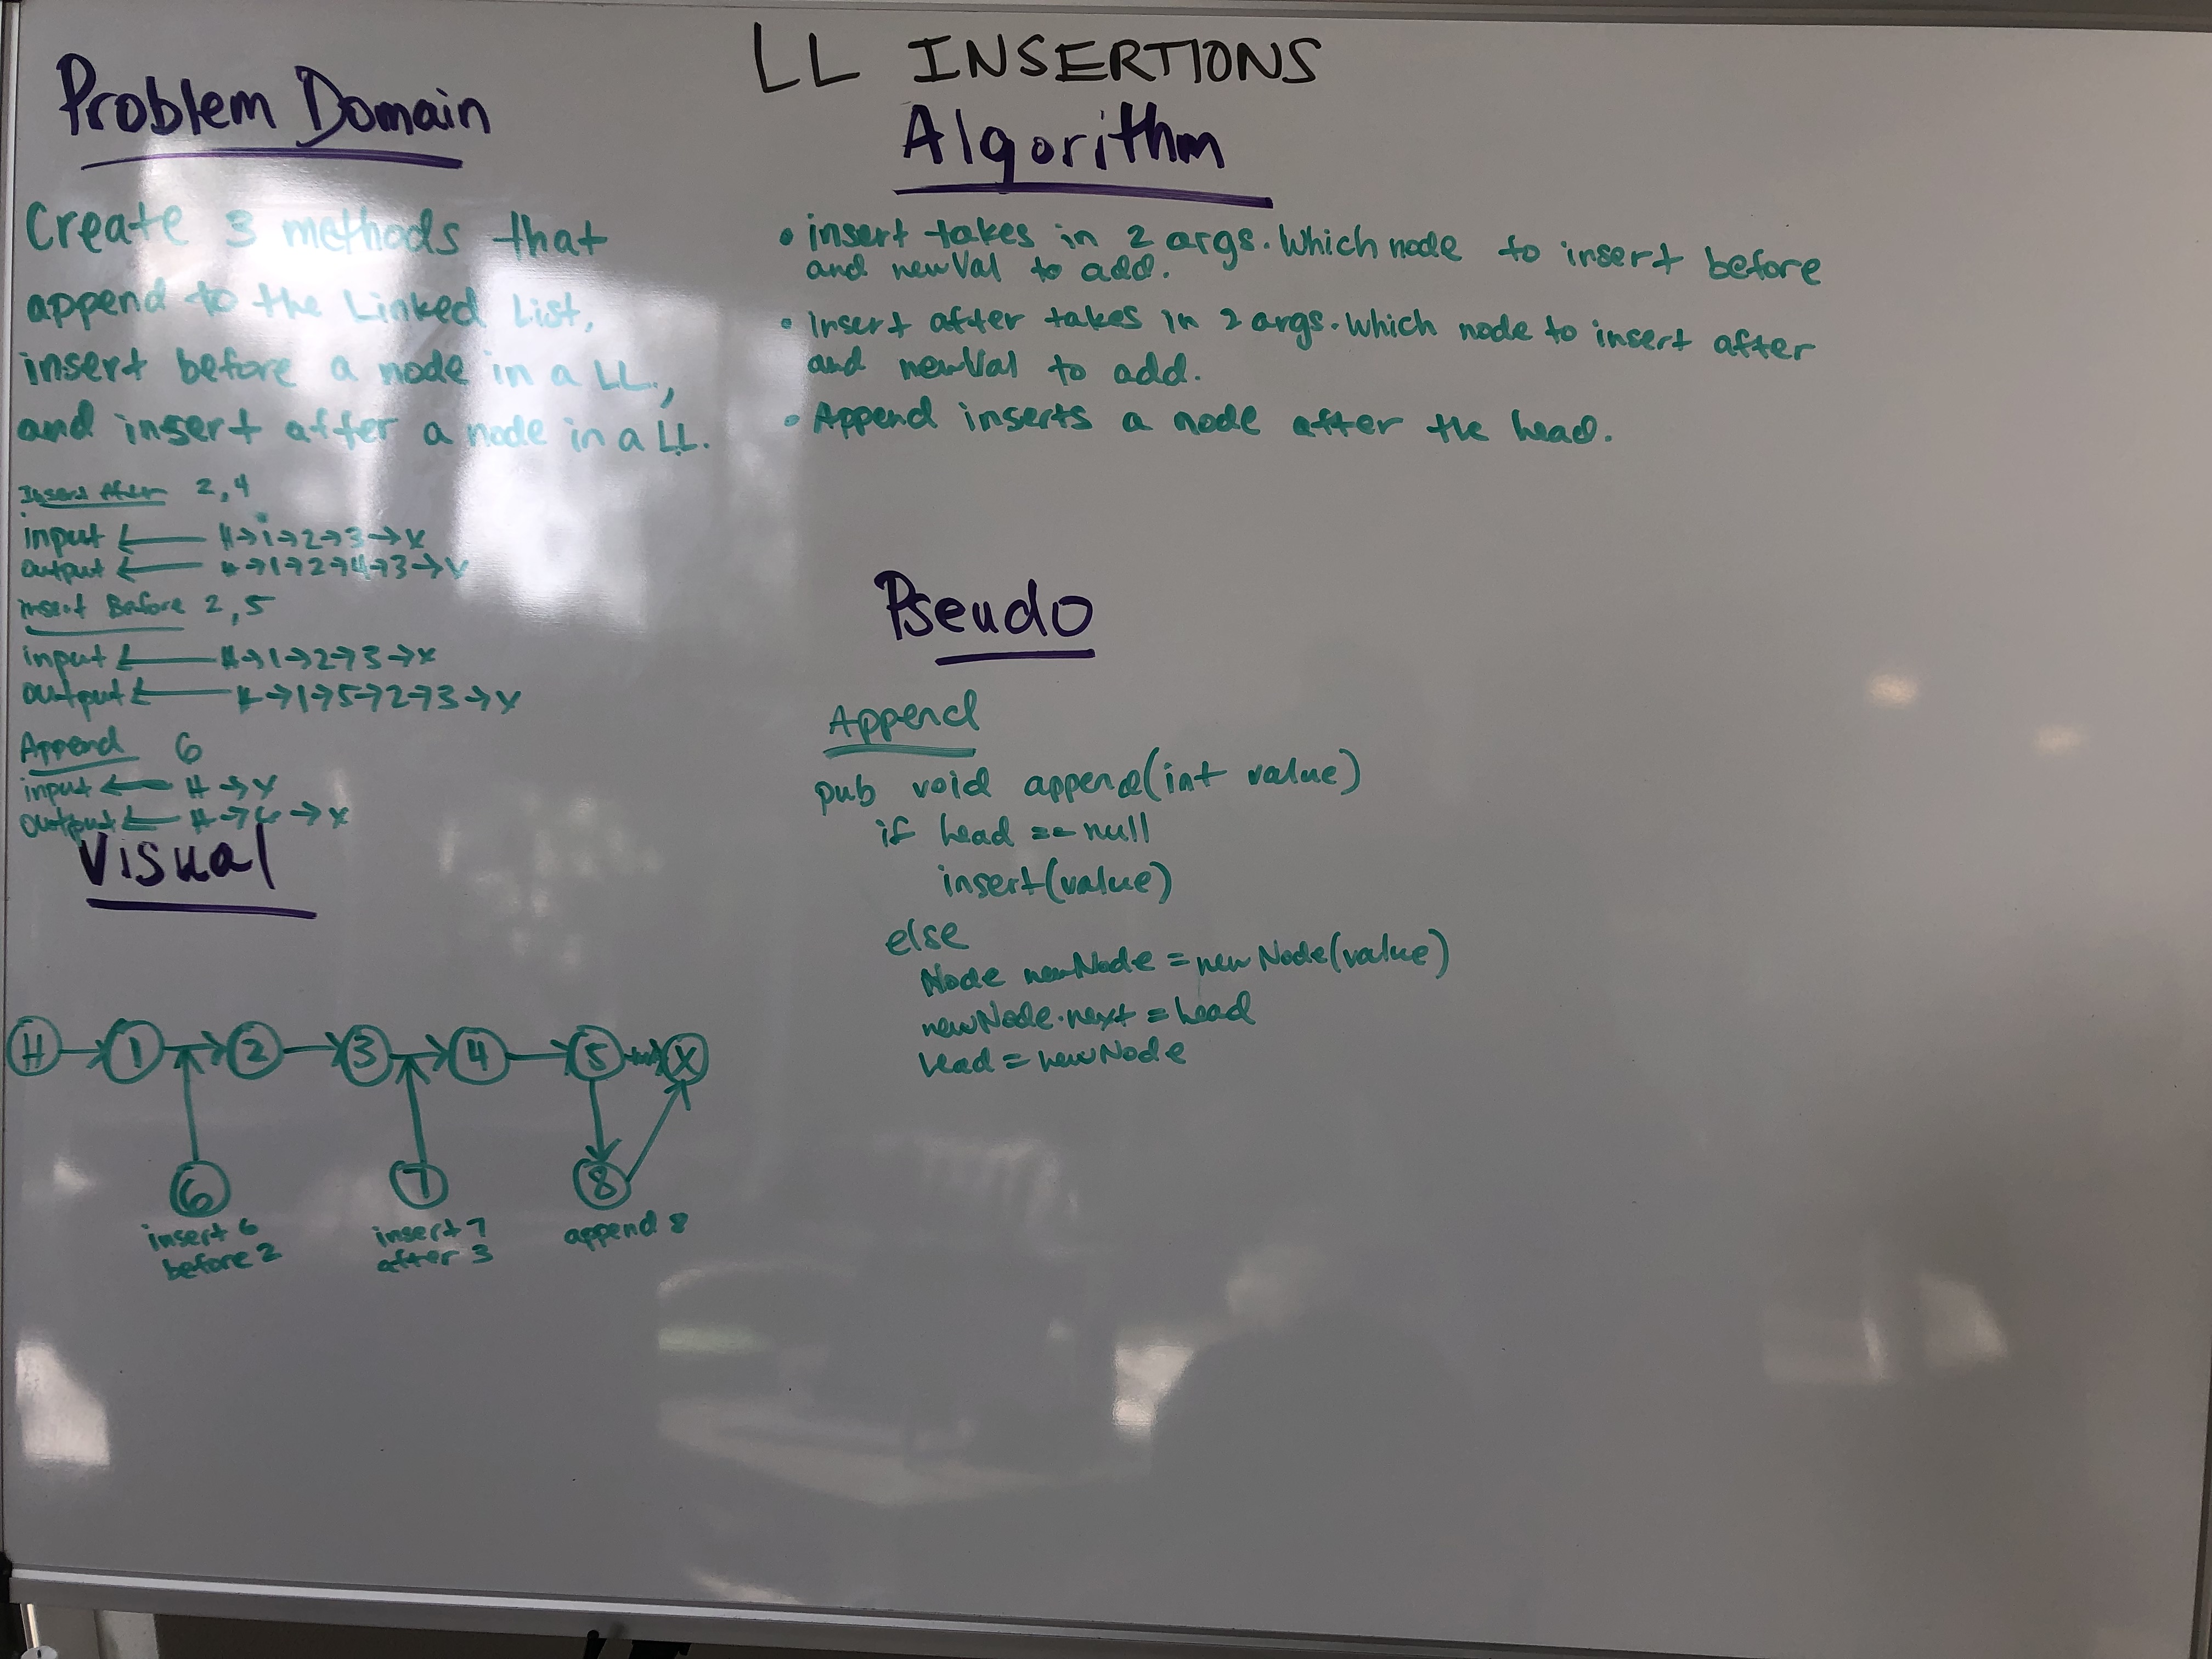 LL INSERTIONS
Problem Domain
Create 3 methods that
append to the Linked List,
insert before a node in a LL.,
and insert after a node in a LL.
Insert After 2,4
input ← H→1→2→3→X
output ← H→1→2→4→3→X
insert Before 2,5
input ← H→1→2→3→X
output ← H→1→5→2→3→X
Append 6
input ← H→X
output ← H→6→X
Visual
H → 1 → 2 → 3 → 4 → 5 → X
6 7 8
insert 6
before 2
insert 7
after 3
append 8
Algorithm
• insert takes in 2 args. Which node to insert before
and newVal to add.
• Insert after takes in 2 args. Which node to insert after
and newVal to add.
• Append inserts a node after the head.
Pseudo
Append
pub void append(int value)
if head == null
insert(value)
else
Node newNode = new Node(value)
newNode.next = head
head = newNode